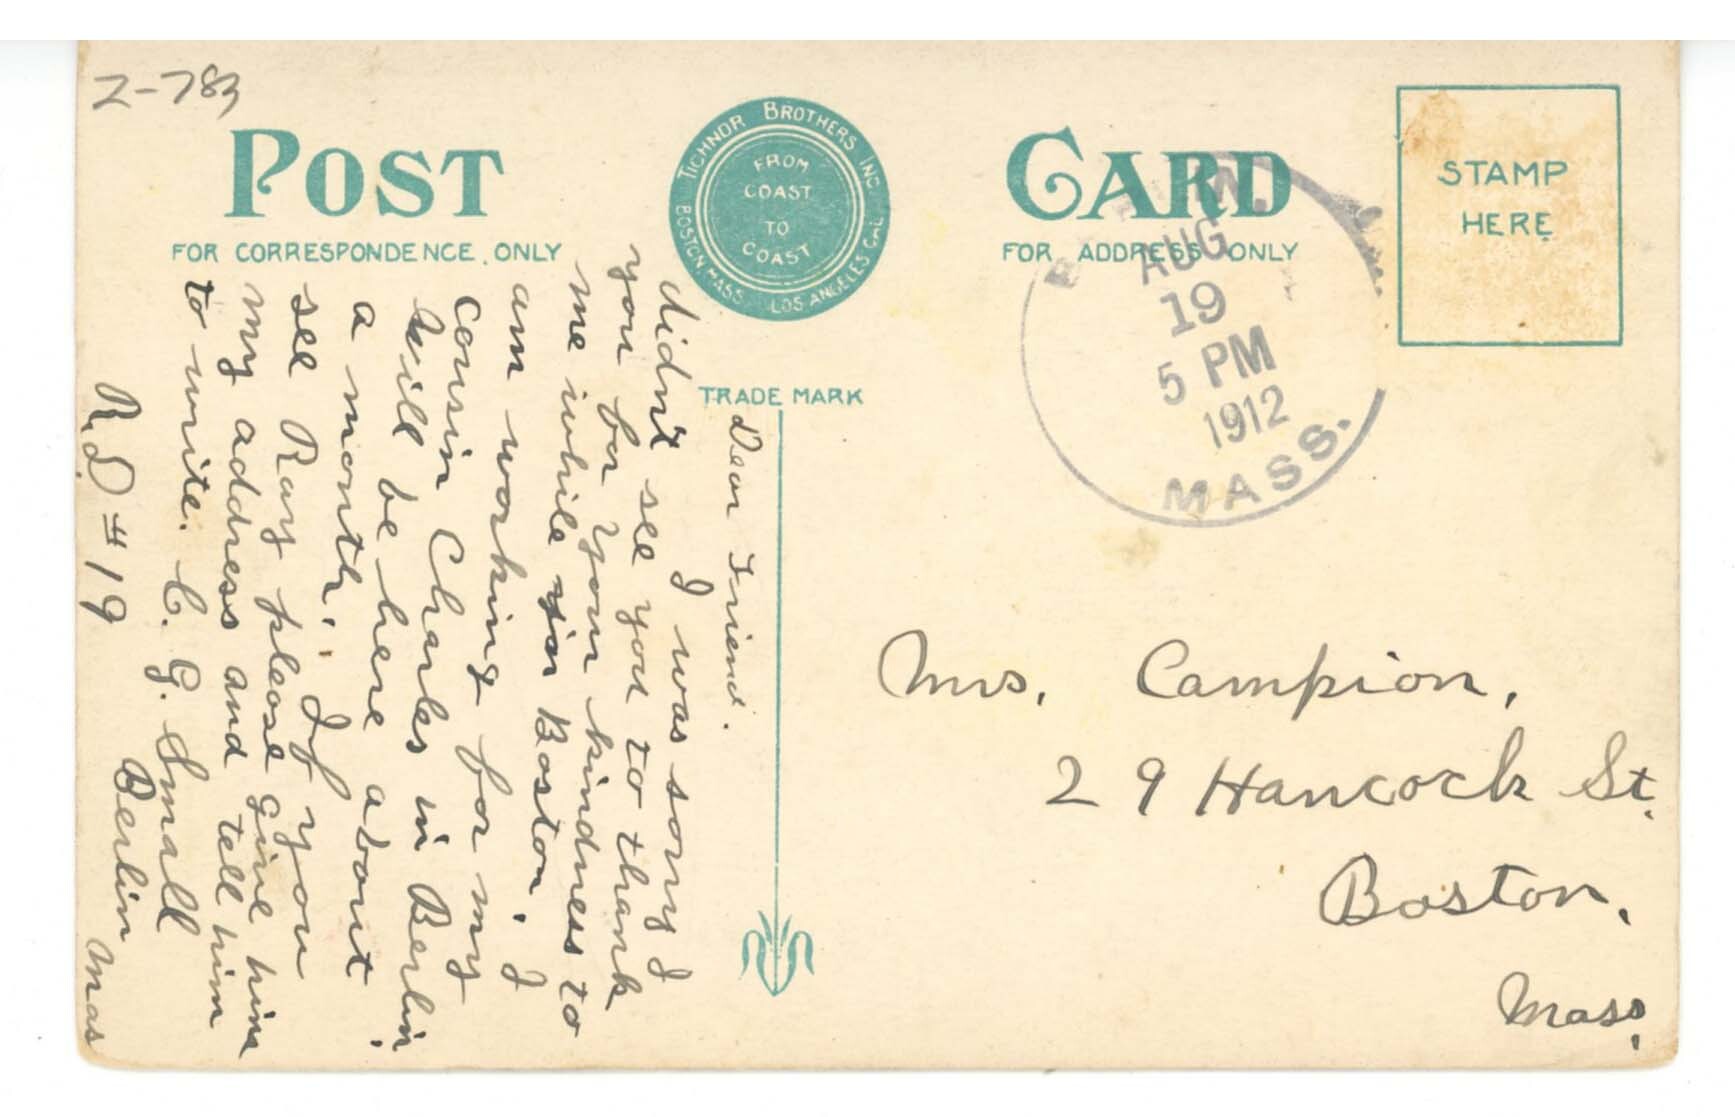 Z-783
POST CARD
TICHNOR BROTHERS INC.
BOSTON MASS. LOS ANGELES CAL.
FROM
COAST
TO
COAST
TRADE MARK
FOR CORRESPONDENCE ONLY
FOR ADDRESS ONLY
STAMP
HERE
AUG
19
5 PM
1912
MASS.
Dear Friend.
I was sorry I
didn't see you to thank
you for your kindness to
me while in Boston. I
am working for my
cousin Charles in Berlin
will be here about
a month. If you
see Ray please give him
my address and tell him
to write. C. G. Small
Berlin
R.D # 19 Mas
Mrs. Campion,
29 Hancock St.
Boston,
Mass.